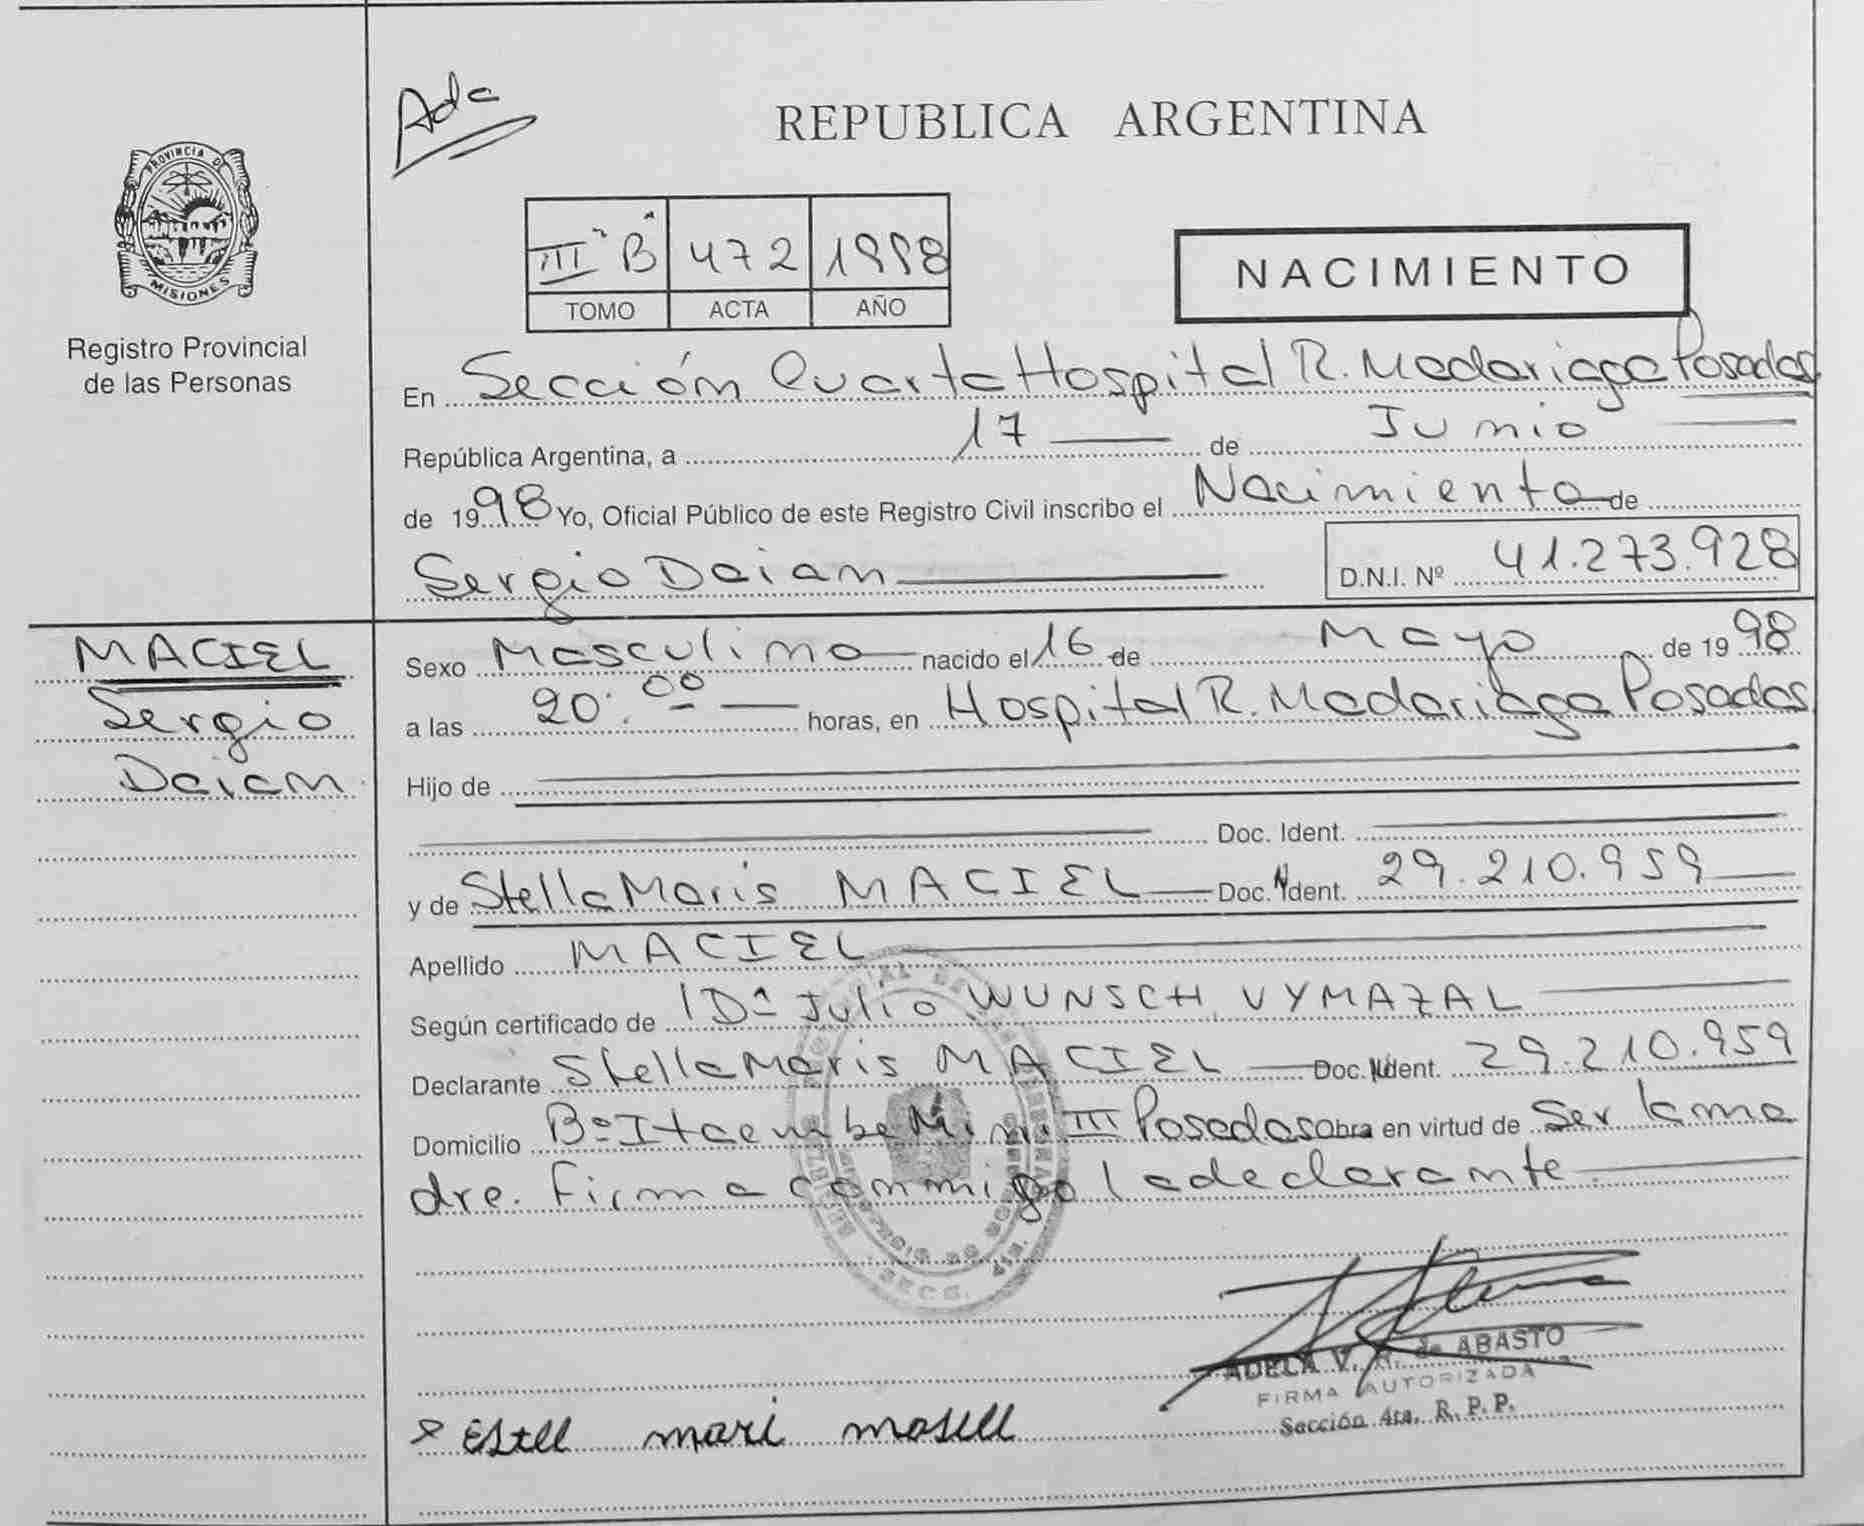 Ada
REPUBLICA ARGENTINA
PROVINCIA DE
MISIONES
Registro Provincial
de las Personas
III "B" 472 1998
TOMO ACTA AÑO
NACIMIENTO
En Sección Cuarta Hospital R. Madariaga Posadas
República Argentina, a 17 de Junio
de 1998 Yo, Oficial Público de este Registro Civil inscribo el Nacimiento de
Sergio Daian D.N.I. Nº 41.273.928
MACIEL
Sergio
Daian
Sexo Masculino nacido el 16 de Mayo de 1998
a las 20:00 horas, en Hospital R. Madariaga Posadas
Hijo de
Doc. Ident.
y de Stella Maris MACIEL Doc. Ident. 29.210.959
Apellido MACIEL
Según certificado de Dr Julio WUNSCH VYMAZAL
Declarante Stella Maris MACIEL Doc. Ident. 29.210.959
Domicilio Bº Itaembe Mini III Posadas Obra en virtud de Ser la ma
dre. Firma conmigo la declarante.
ADELA V. de ABASTO
FIRMA AUTORIZADA
Sección 4ta. R. P. P.
Estell mari masell